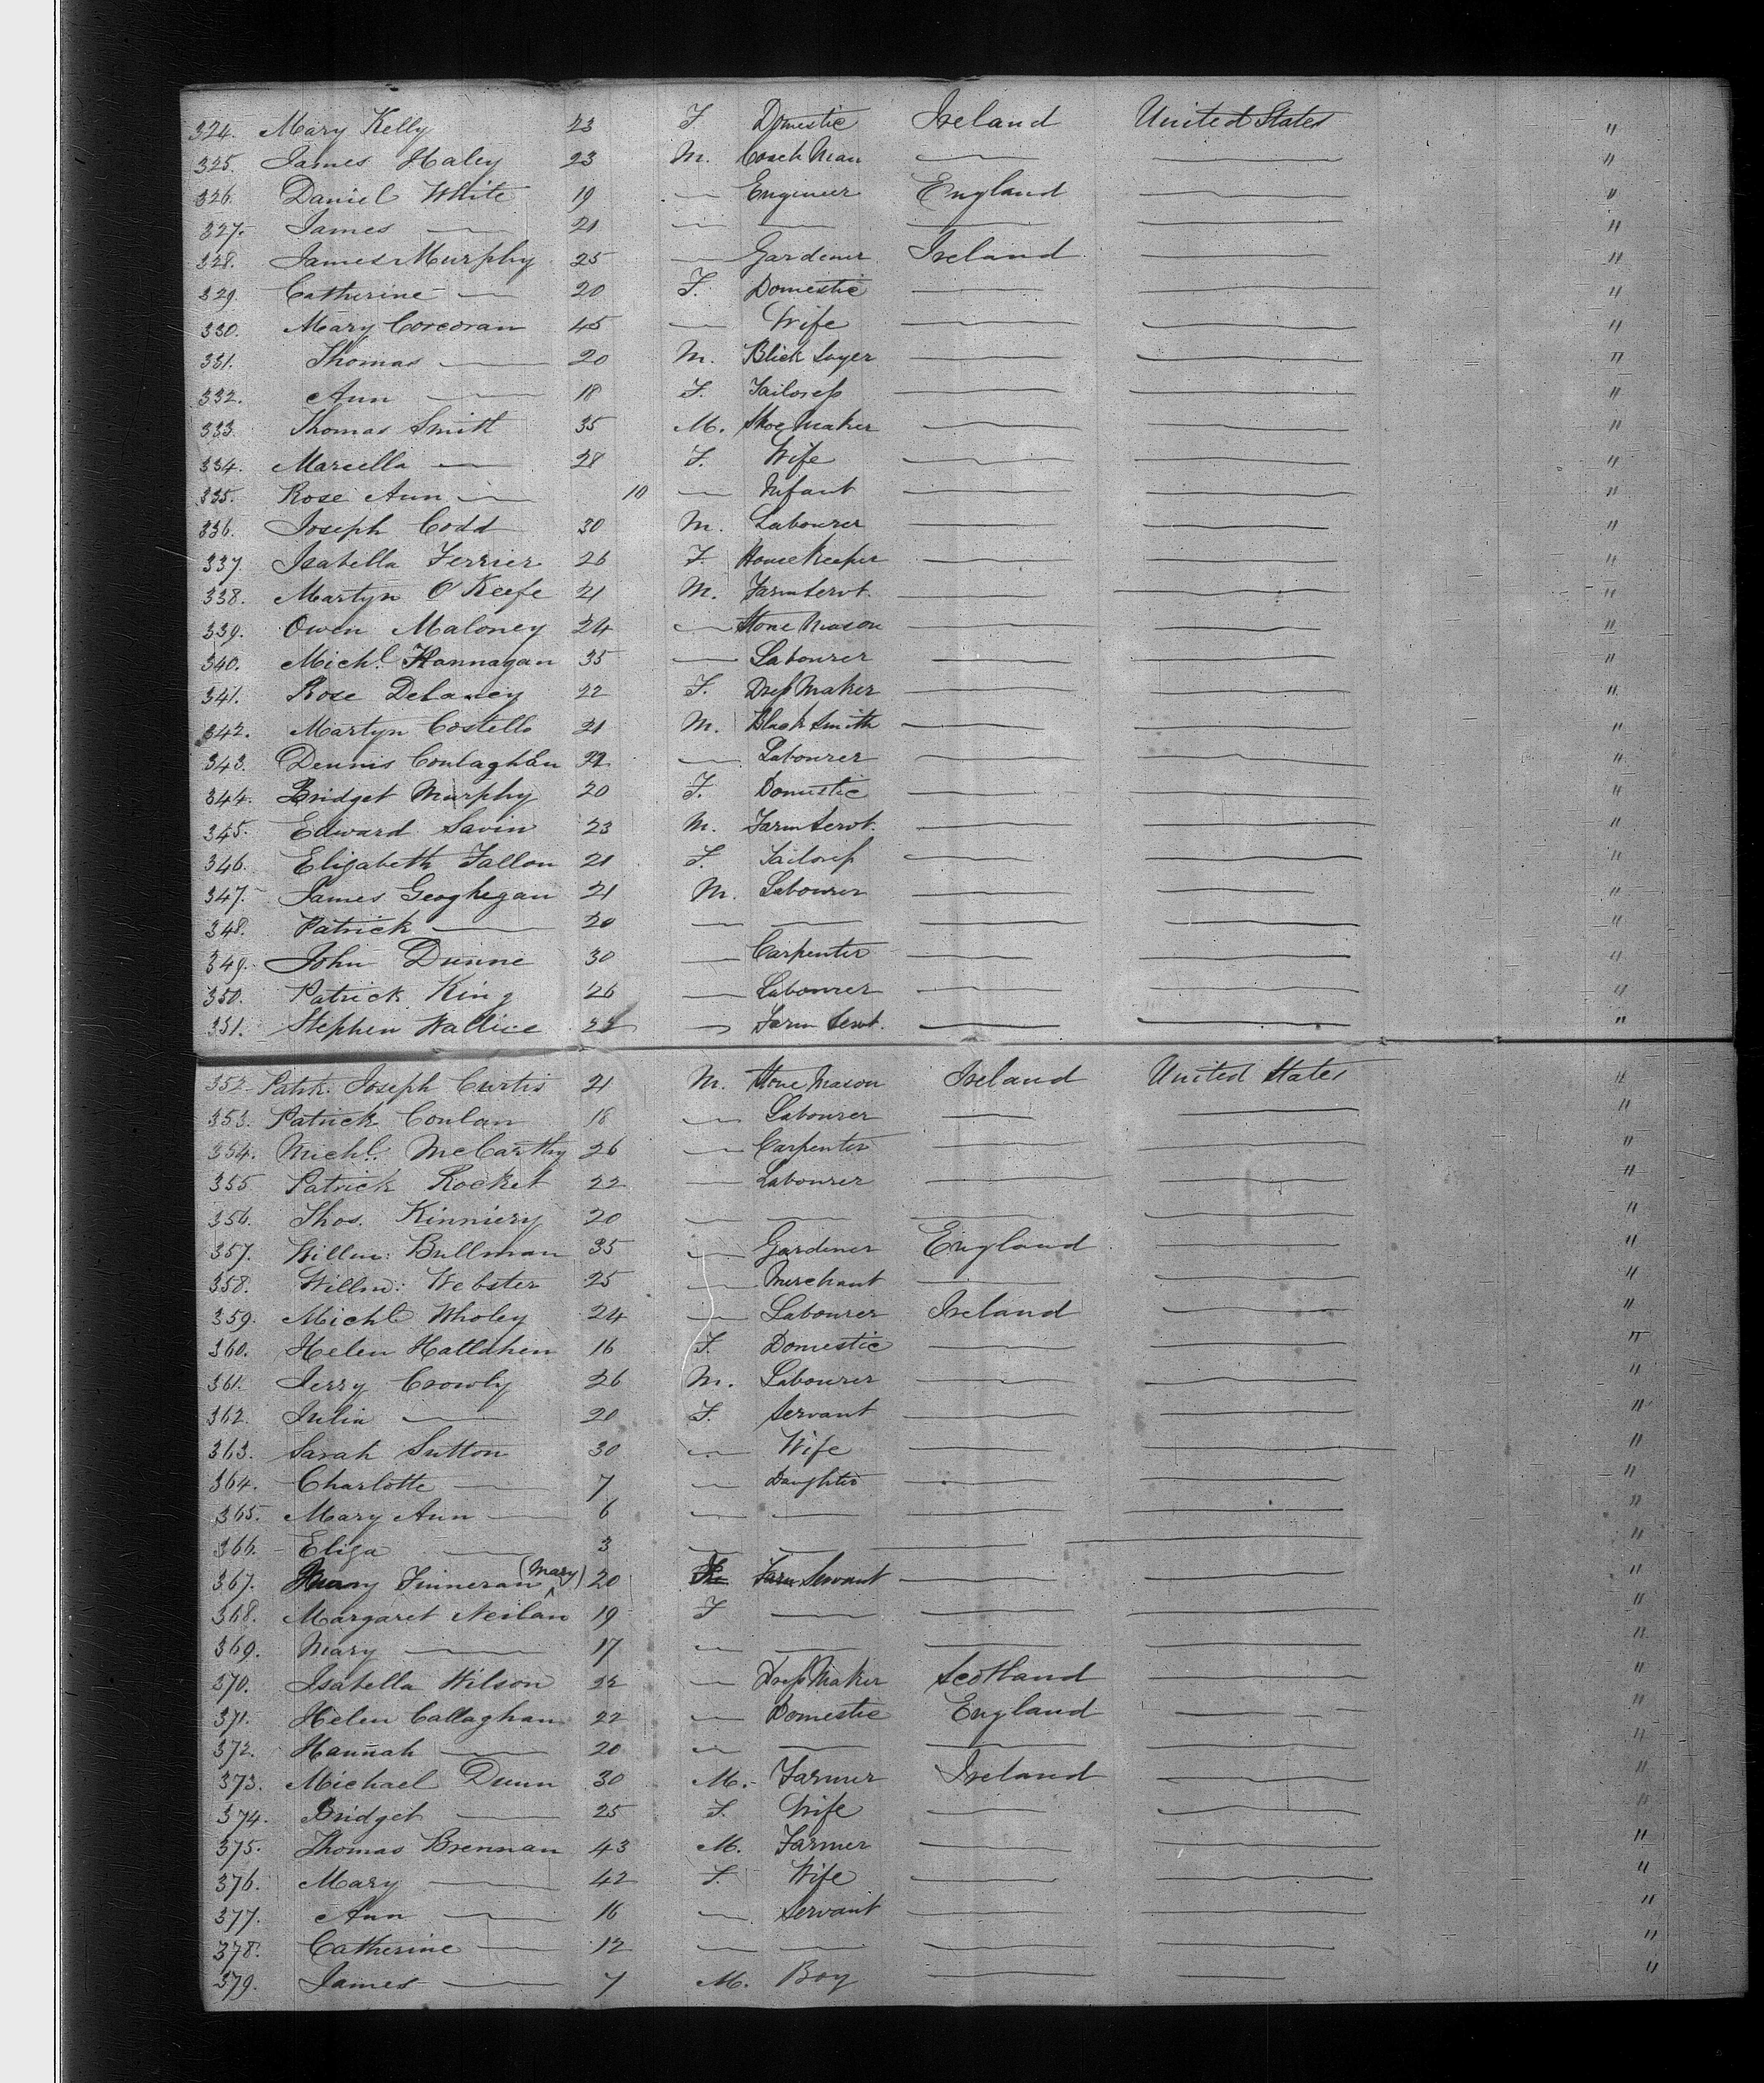 324. Mary Kelly 23 F Domestic Ireland United States "
325. James Haley 23 M. Coach Man — — "
326. Daniel White 19 — Engineer England — "
327. James — 21 — — — — "
328. James Murphy 25 — Gardener Ireland — "
329. Catherine — 20 F. Domestic — — "
330. Mary Corcoran 45 — Wife — — "
331. Thomas — 20 M. Blick Layer — — "
332. Ann — 18 F. Tailoress — — "
333. Thomas Smith 35 M. Shoe Maker — — "
334. Marcella — 28 F. Wife — — "
335. Rose Ann — 10 — Infant — — "
336. Joseph Codd 30 M. Labourer — — "
337. Isabella Ferrier 26 F. House Keeper — — "
338. Martyn O'Keefe 21 M. Farm Servt. — — "
339. Owen Maloney 24 — Stone Mason — — "
340. Michl. Hannagan 35 — Labourer — — "
341. Rose Delaney 22 F. Dress Maker — — "
342. Martyn Costello 21 M. Black Smith — — "
343. Dennis 22 — Labourer — — "
344. Bridget Murphy 20 F. Domestic — — "
345. Edward Savin 23 M. Farm Servt. — — "
346. Elizabeth Fallon 21 F. Tailoress — — "
347. James Geoghegan 21 M. Labourer — — "
348. Patrick — 20 — — — — "
349. John Dunne 30 — Carpenter — — "
350. Patrick King 26 — Labourer — — "
351. Stephen Wallice — Farm Servt. — — "
352. Patrk. Joseph Curtis 21 M. Stone Mason Ireland United States "
353. Patrick Conlan 18 — Labourer — — "
354. Michl. McCarthy 26 — Carpenter — — "
355. Patrick Rocket 22 — Labourer — — "
356. Thos. Kinniery 20 — — — — "
357. Willm: Bullman 35 — Gardener England — "
358. Willm: Webster 25 — Merchant — — "
359. Michl Wholey 24 — Labourer Ireland — "
360. Helen 16 F. Domestic — — "
361. Jerry Crowly 26 M. Labourer — — "
362. Julia — 20 F. Servant — — "
363. Sarah Sutton 30 — Wife — — "
364. Charlotte — 7 — Daughter — — "
365. Mary Ann — 6 — — — — "
366. Eliza — 3 — — — — "
367. Finneran (Mary) 20 Farm Servant — — "
368. Margaret Neilan 19 F — — — "
369. Mary — 17 — — — — "
370. Isabella Wilson 22 — Dress Maker Scotland — "
371. Helen Callaghan 22 — Domestic England — "
372. Hannah — 20 — — — — "
373. Michael Dunn 30 M. Farmer Ireland — "
374. Bridget — 25 F. Wife — — "
375. Thomas Brennan 43 M. Farmer — — "
376. Mary — 42 F. Wife — — "
377. Ann — 16 — Servant — — "
378. Catherine — 12 — — — — "
379. James — 7 M. Boy — — "